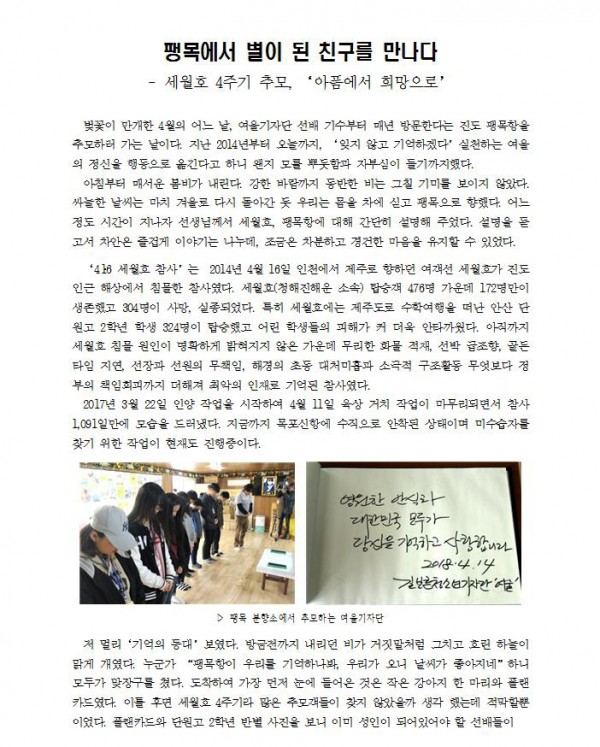 팽목에서 별이 된 친구를 만나다
- 세월호 4주기 추모, ‘아픔에서 희망으로’
벚꽃이 만개한 4월의 어느 날, 여울기자단 선배 기수부터 매년 방문한다는 진도 팽목항을
추모하러 가는 날이다. 지난 2014년부터 오늘까지, ‘잊지 않고 기억하겠다’ 실천하는 여울
의 정신을 행동으로 옮긴다고 하니 왠지 모를 뿌듯함과 자부심이 들기까지했다.
아침부터 매서운 봄비가 내린다. 강한 바람까지 동반한 비는 그칠 기미를 보이지 않았다.
싸늘한 날씨는 마치 겨울로 다시 돌아간 듯 우리는 몸을 차에 싣고 팽목으로 향했다. 어느
정도 시간이 지나자 선생님께서 세월호, 팽목항에 대해 간단히 설명해 주었다. 설명을 듣
고서 차안은 즐겁게 이야기는 나누데, 조금은 차분하고 경건한 마음을 유지할 수 있었다.
‘416 세월호 참사’는 2014년 4월 16일 인천에서 제주로 향하던 여객선 세월호가 진도
인근 해상에서 침몰한 참사였다. 세월호(청해진해운 소속) 탑승객 476명 가운데 172명만이
생존했고 304명이 사망, 실종되었다. 특히 세월호에는 제주도로 수학여행을 떠난 안산 단
원고 2학년 학생 324명이 탑승했고 어린 학생들의 피해가 커 더욱 안타까웠다. 아직까지
세월호 침몰 원인이 명확하게 밝혀지지 않은 가운데 무리한 화물 적재, 선박 급조향, 골든
타임 지연, 선장과 선원의 무책임, 해경의 초동 대처미흡과 소극적 구조활동 무엇보다 정
부의 책임회피까지 더해져 최악의 인재로 기억된 참사였다.
2017년 3월 22일 인양 작업을 시작하여 4월 11일 육상 거치 작업이 마무리되면서 참사
1,091일만에 모습을 드러냈다. 지금까지 목포신항에 수직으로 안착된 상태이며 미수습자를
찾기 위한 작업이 현재도 진행중이다.
영원한 안식과
대한민국 모두가
당신을 기억하고 사랑합니다
2018.4.14
> 팽목 분향소에서 추모하는 여울기자단
저 멀리 ‘기억의 등대’ 보였다. 방금전까지 내리던 비가 거짓말처럼 그치고 흐린 하늘이
맑게 개였다. 누군가 “팽목항이 우리를 기억하나봐, 우리가 오니 날씨가 좋아지네” 하니
모두가 맞장구를 쳤다. 도착하여 가장 먼저 눈에 들어온 것은 작은 강아지 한 마리와 플랜
카드였다. 이틀 후면 세월호 4주기라 많은 추모객들이 찾지 않았을까 생각 했는데 적막할뿐
이었다. 플랜카드와 단원고 2학년 반별 사진을 보니 이미 성인이 되어있어야 할 선배들이